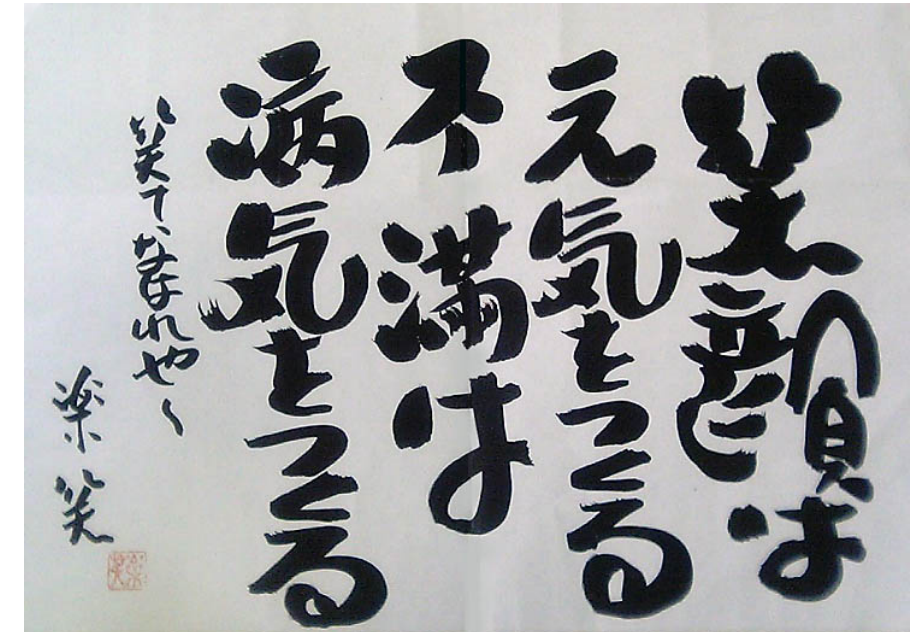 笑顔は
元気をつくる
不満は
病気をつくる
笑て、なはれや〜
楽笑